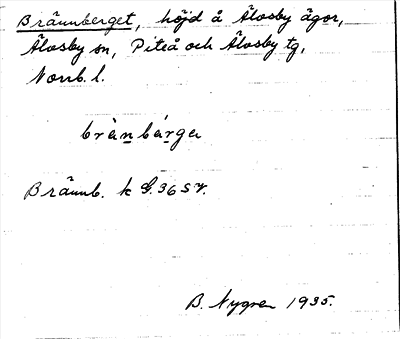 Brännberget, höjd å Älvsby ägor,
Älvsby sn, Piteå och Älvsby tg,
Norrb. l.
brànbárgər
Brännb. k G. 36 SV.
B. Nygren 1935.